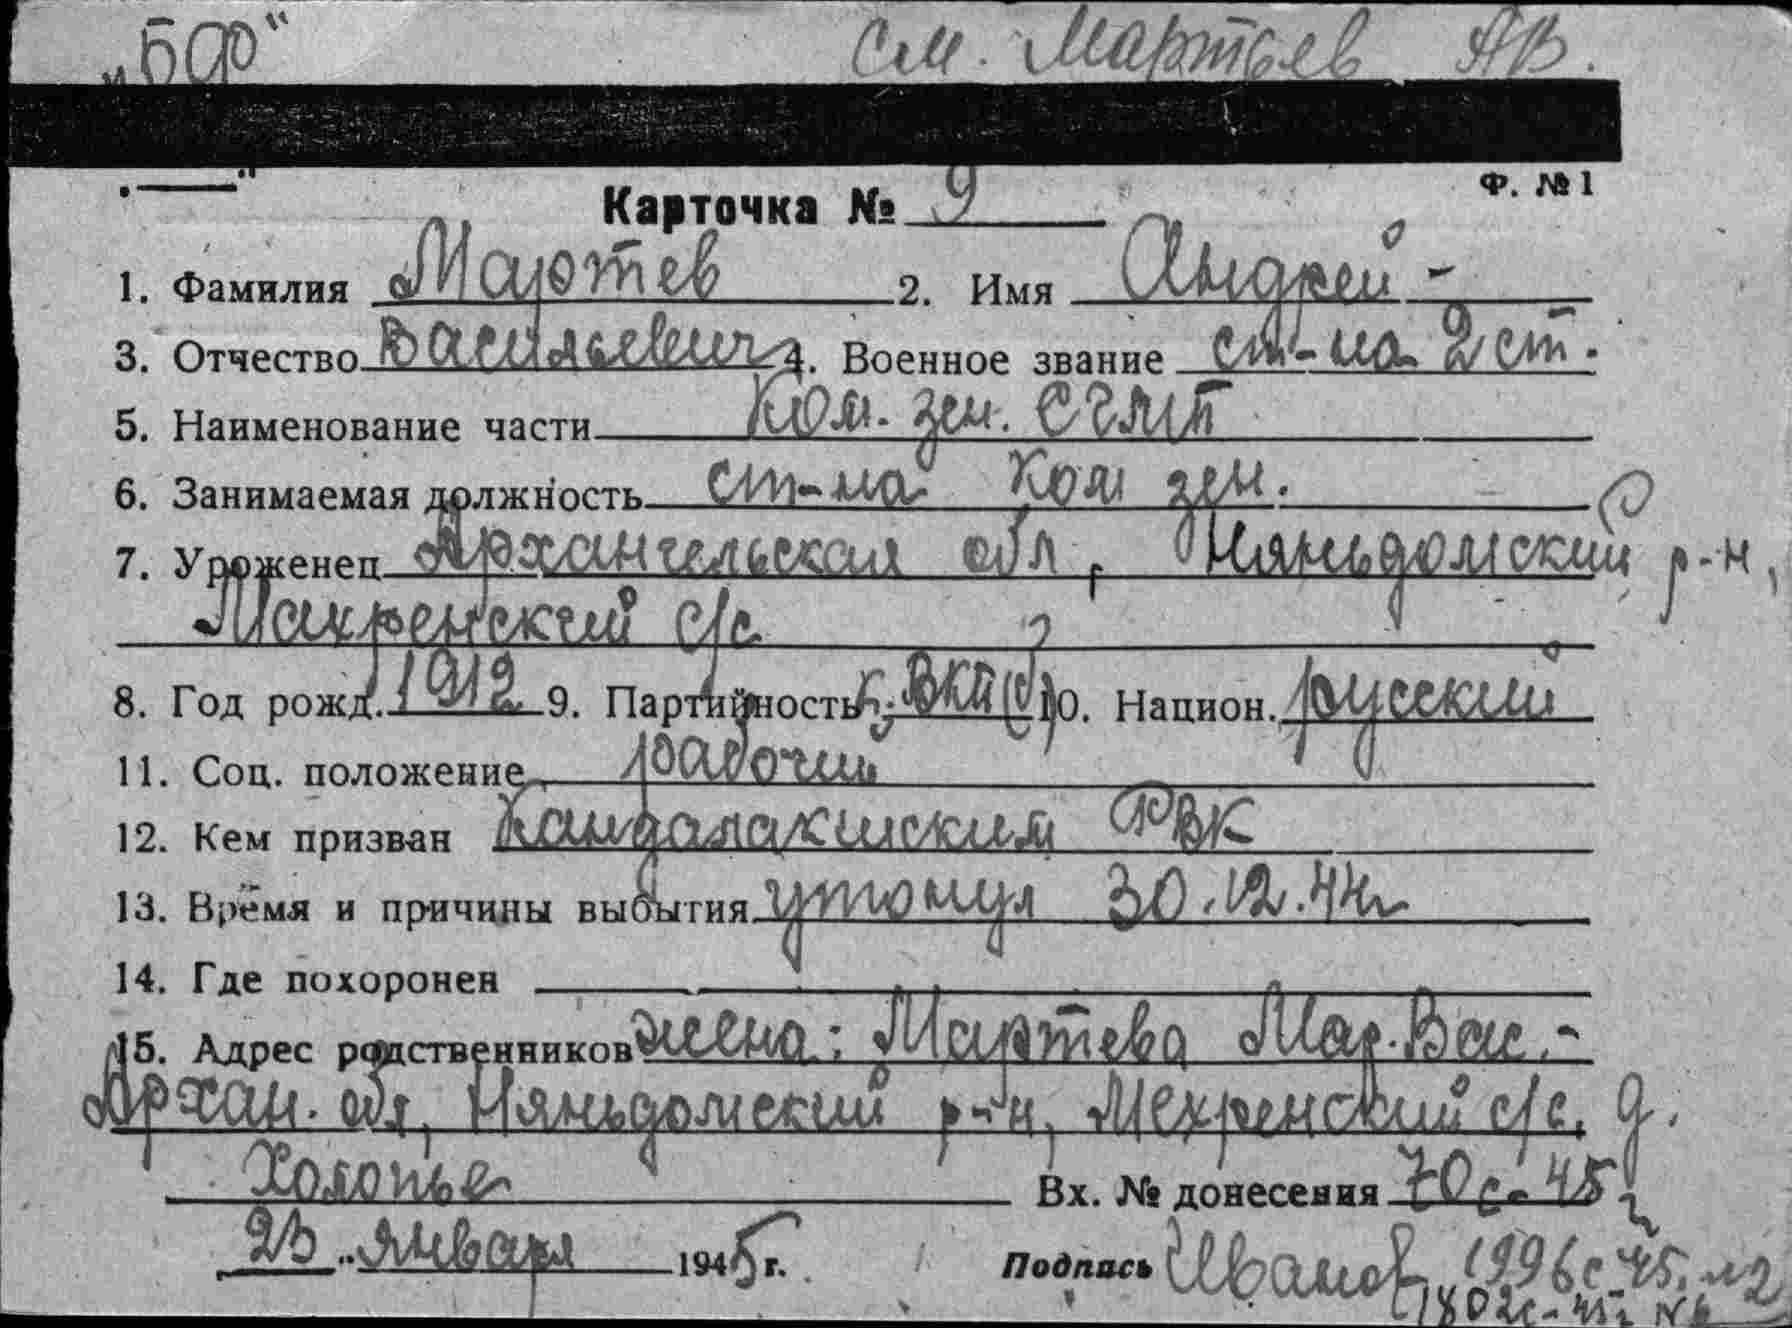 „БФ“
см. Мартьев АВ.
Ф. №1
Карточка № 9
1. Фамилия Мартев 2. Имя Андрей -
3. Отчество Васильевич 4. Военное звание ст-на 2 ст.
5. Наименование части Ком. зен.
6. Занимаемая должность ст-на Ком зен.
7. Уроженец Архангельская обл, Няньдомский р-н,
Махренский с/с
8. Год рожд. 1912 9. Партийность к. ВКП(б) 10. Национ. русский
11. Соц. положение рабочий
12. Кем призван Кандалакшским РВК
13. Время и причины выбытия утонул 30.12.44г
14. Где похоронен
15. Адрес родственников жена: Мартева Мар. Вас. -
Архан. обл, Няньдомский р-н, Мехренский с/с, д.
Холопье
Вх. № донесения 70с-45г
23 января 1945 г. Подпись Иванов 1996с-45. л2
1802с-45г №6